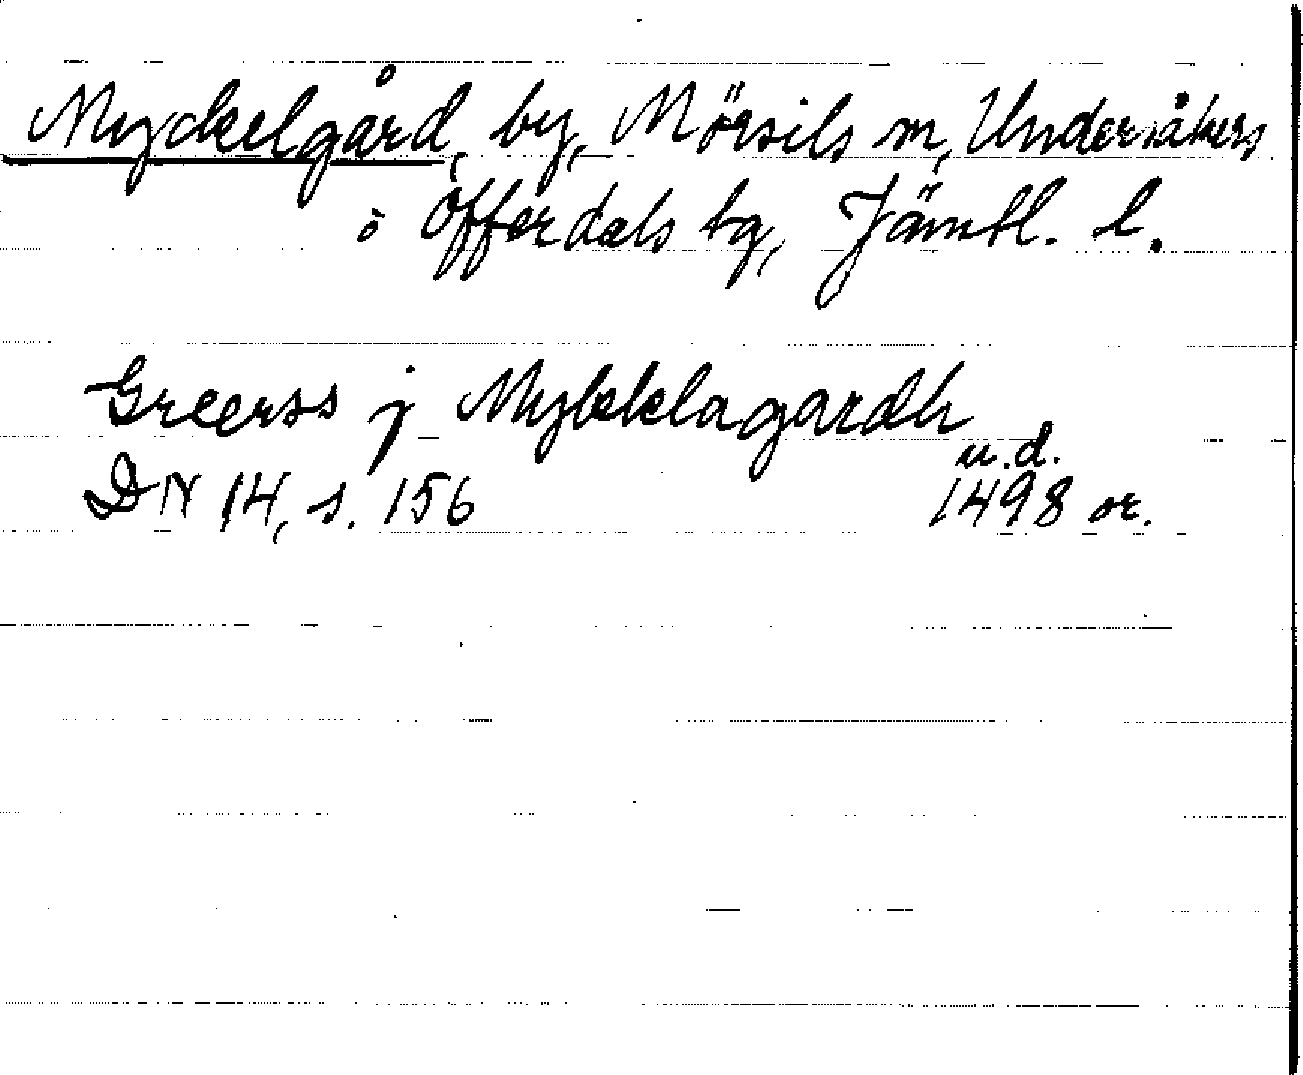 Myckelgård, by, Mörsils sn, Undersåkers
o Offerdals tg, Jämtl. l.
Greerss j Mykkelagardh
u.d.
DN 14, s. 156 1498 or.